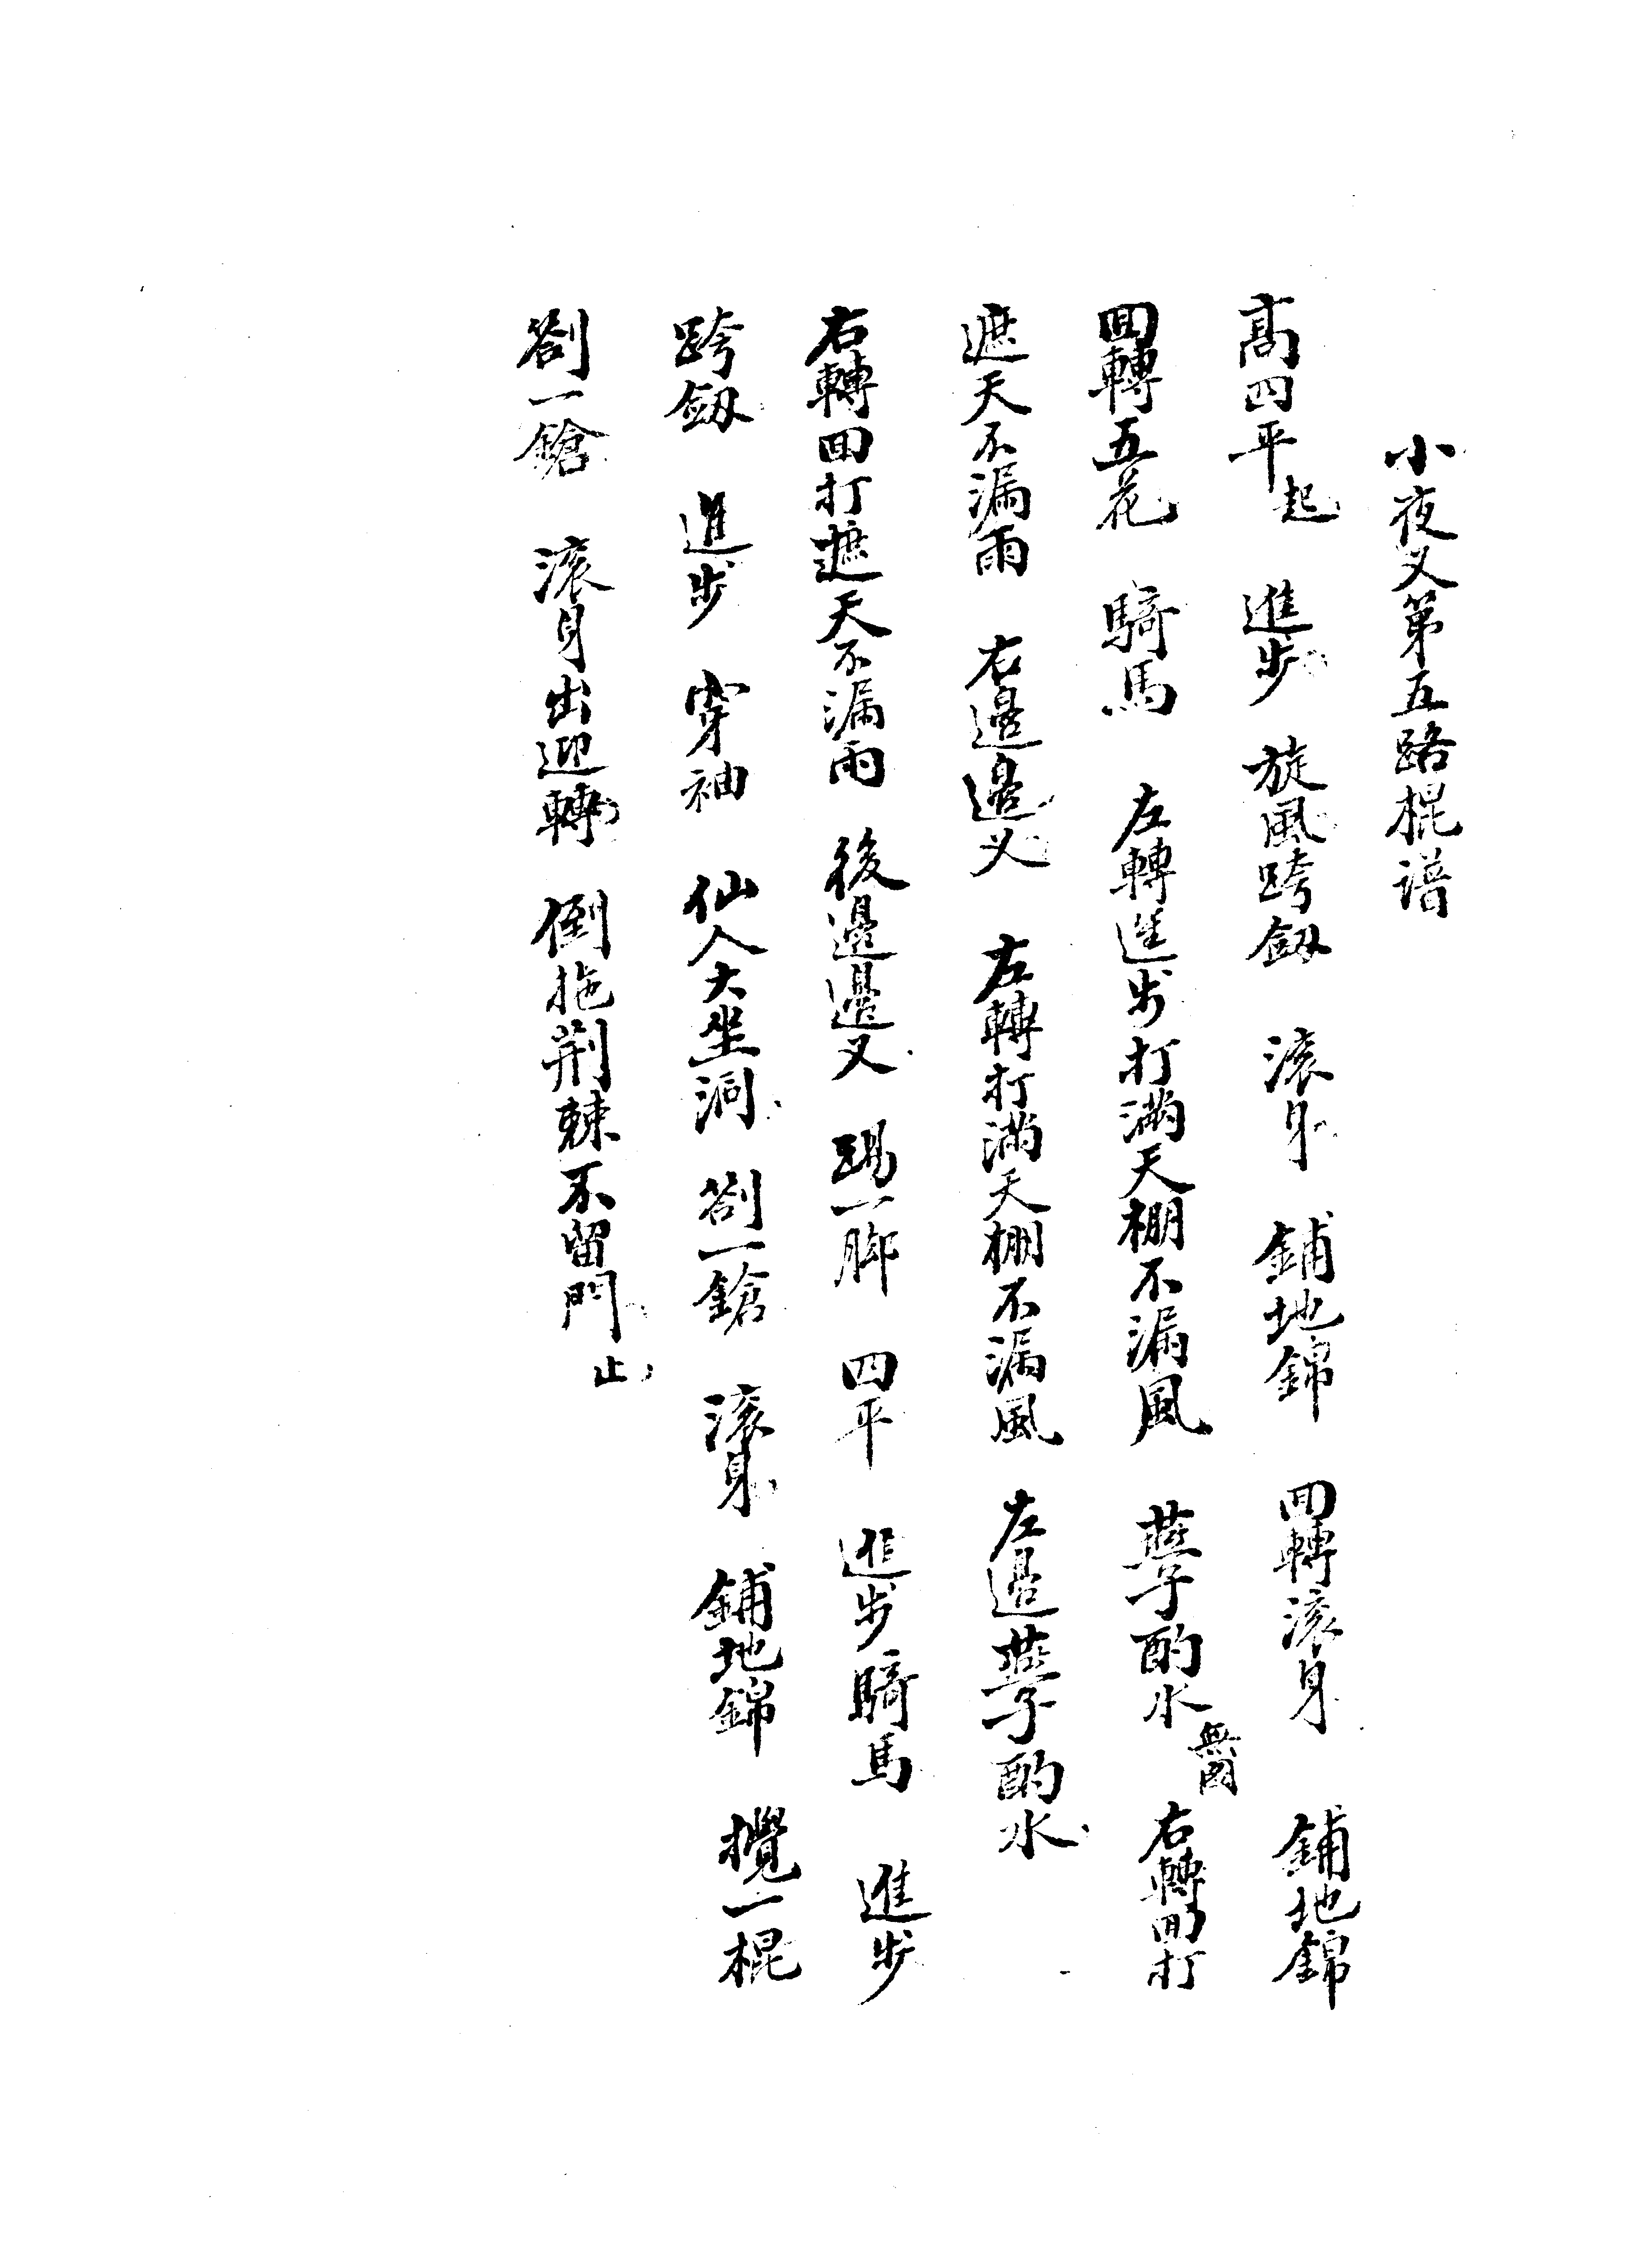 小夜叉第五路棍谱
高四平起 進步 旋風跨劔 滚身 鋪地錦 回轉滚身 鋪地錦
回轉五花 騎馬 左轉進步打滿天棚不漏風 燕子酌水 無圖 右轉回打
遮天不漏雨 右邊邊叉 左轉打滿天棚不漏風 左邊燕子酌水
右轉回打遮天不漏雨 後邊邊叉 踢一脚 四平 進步騎馬 進步
跨劔 進步 穿袖 仙人大坐洞 劄一鎗 滚身 鋪地錦 攪一棍
劄一鎗 滚身出迎轉 倒拖荆棘不留門 止